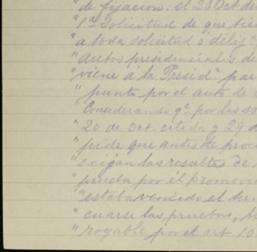 "de fijacion. el 20 Oct de
"1ª Solicitud de que
"a toda solicitud o dilig
"autos presidenciales de
"viene á la Presid.ª pa
"punto por el auto de
"Considerando q.e por las so
"20 de Oct. citada y 29 d
"pide que antes de pro
"exijan las resultas de
"puesta por él promovi
"estaba vencido el ter
"cuarse las pruebas,
"rogable por el art 10